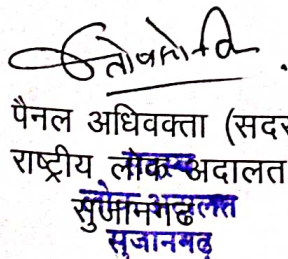 पैनल अधिवक्ता (सदस
राष्ट्रीय लोक अदालत
सुजानगढ़
लोक अदालत
सुजानगढ़